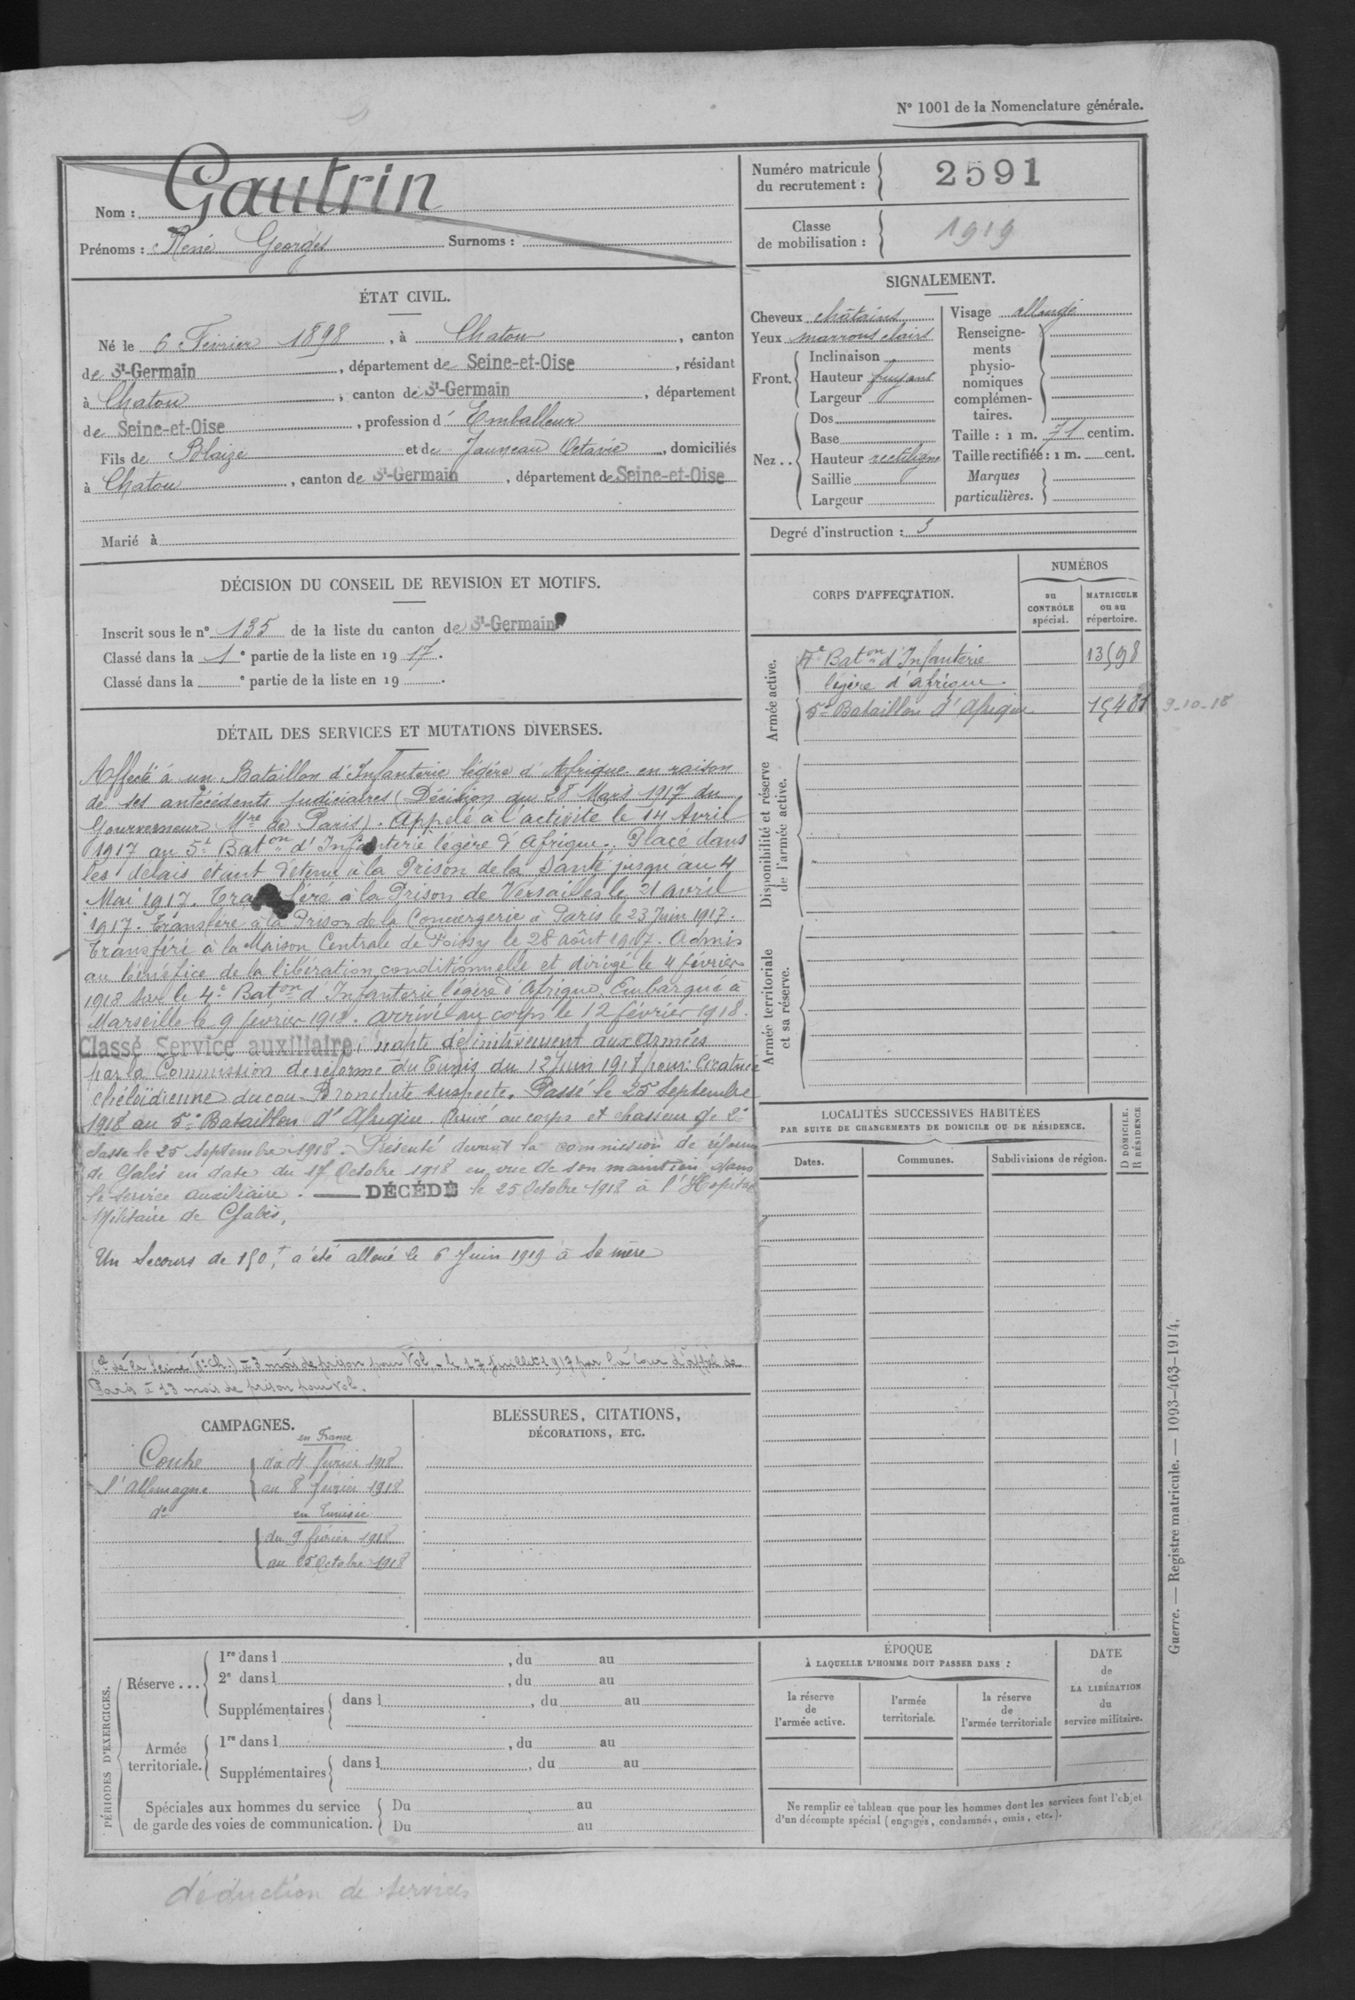 N° 1001 de la Nomenclature générale.
Nom : Gautrin
Prénoms : René Georges Surnoms :
Numéro matricule du recrutement : 2591
Classe de mobilisation : 1919
ÉTAT CIVIL.
Né le 6 Février 1898, à Chatou, canton
de St-Germain, département de Seine-et-Oise, résidant
à Chatou, canton de St-Germain, département
de Seine-et-Oise, profession d' Emballeur
Fils de Blaize et de Jauneau Octavie, domiciliés
à Chatou, canton de St-Germain, département de Seine-et-Oise
Marié à
SIGNALEMENT.
Cheveux châtains
Yeux marrons clairs
Front. Inclinaison
Hauteur fuyant
Largeur
Nez .. Dos
Base
Hauteur rectiligne
Saillie
Largeur
Visage allongé
Renseigne-
ments
physio-
nomiques
complémen-
taires.
Taille : 1 m. 71 centim.
Taille rectifiée : 1 m. cent.
Marques
particulières.
Degré d'instruction : 3
DÉCISION DU CONSEIL DE REVISION ET MOTIFS.
Inscrit sous le n° 135 de la liste du canton de St-Germain
Classé dans la 1e partie de la liste en 1917.
Classé dans la e partie de la liste en 19 .
CORPS D'AFFECTATION.
NUMÉROS
au CONTRÔLE spécial.
MATRICULE ou au répertoire.
Armée active.
4e Baton d'Infanterie 13598
légère d'afrique.
5e Bataillon d'Afrique 15481 9-10-18
Disponibilité et réserve de l'armée active.
Armée territoriale et sa réserve.
DÉTAIL DES SERVICES ET MUTATIONS DIVERSES.
Affecté à un Bataillon d'Infanterie légère d'Afrique en raison
de ses antécédents judiciaires (Décision du 28 Mars 1917 du
Gouverneur Mre de Paris). Appelé à l'activité le 14 Avril
1917 au 5e Baton d'Infanterie légère d'Afrique. Placé dans
les délais étant détenu à la Prison de la Santé jusqu'au 4
Mai 1917. Transféré à la Prison de Versailles le 21 avril
1917. Transféré à la Prison de la Conciergerie à Paris le 23 Juin 1917.
Transféré à la Maison Centrale de Poissy le 28 août 1917. Admis
au bénéfice de la libération conditionnelle et dirigé le 4 février
1918 sur le 4e Baton d'Infanterie légère d'Afrique. Embarqué à
Marseille le 9 février 1918. arrivé au corps le 12 février 1918.
Classé Service auxiliaire, inapte définitivement aux Armées
par la Commission de réforme de Tunis du 12 Juin 1918 pour: Cicatrice
chéloïdienne du cou Bronchite suspecte. Passé le 25 Septembre
1918 au 5e Bataillon d'Afrique. Arrivé au corps et chasseur de 2e
classe le 25 septembre 1918. Présenté devant la commission de réforme
de Gabès en date du 17 Octobre 1918 en vue de son maintien dans
le service auxiliaire. DÉCÉDÉ le 25 Octobre 1918 à l'Hopital
Militaire de Gabès.
Un Secours de 150f a été alloué le 6 Juin 1919 à sa mère
de la Seine (8e Ch.) à 3 mois de prison pour Vol. le 17 juillet 1917 par la Cour d'appel de
Paris à 13 mois de prison pour vol.
LOCALITÉS SUCCESSIVES HABITÉES
PAR SUITE DE CHANGEMENTS DE DOMICILE OU DE RÉSIDENCE.
Dates.
Communes.
Subdivisions de région.
D DOMICILE.
R RÉSIDENCE
CAMPAGNES.
en France
Contre du 4 février 1918
l'Allemagne au 8 février 1918
do en Tunisie
du 9 février 1918
au 25 Octobre 1918
BLESSURES, CITATIONS,
DÉCORATIONS, ETC.
PÉRIODES D'EXERCICES.
Réserve ...
1re dans l , du au
2e dans l , du au
Supplémentaires dans l , du au
Armée territoriale.
1re dans l , du au
Supplémentaires dans l , du au
Spéciales aux hommes du service
de garde des voies de communication.
Du au
Du au
ÉPOQUE
À LAQUELLE L'HOMME DOIT PASSER DANS :
la réserve de l'armée active.
l'armée territoriale.
la réserve de l'armée territoriale
DATE de LA LIBÉRATION du service militaire.
Ne remplir ce tableau que pour les hommes dont les services font l'objet
d'un décompte spécial (engagés, condamnés, omis, etc.).
Guerre. — Registre matricule. — 1093-463-1914.
déduction de services